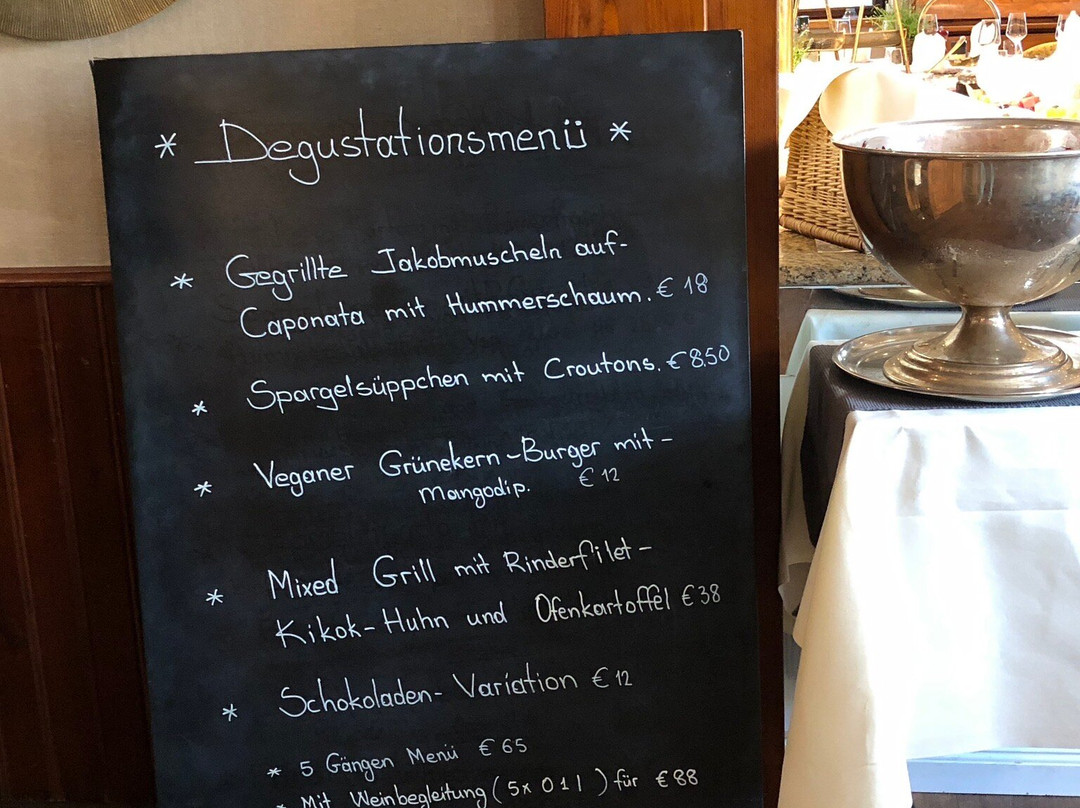 * Degustationsmenü *
* Gegrillte Jakobmuscheln auf-
Caponata mit Hummerschaum. € 18
* Spargelsüppchen mit Croutons. € 8.50
* Veganer Grünekern-Burger mit-
Mangodip. € 12
* Mixed Grill mit Rinderfilet-
Kikok-Huhn und Ofenkartoffel € 38
* Schokoladen-Variation € 12
* 5 Gängen Menü € 65
* Mit Weinbegleitung (5x 0 1 l) für € 88